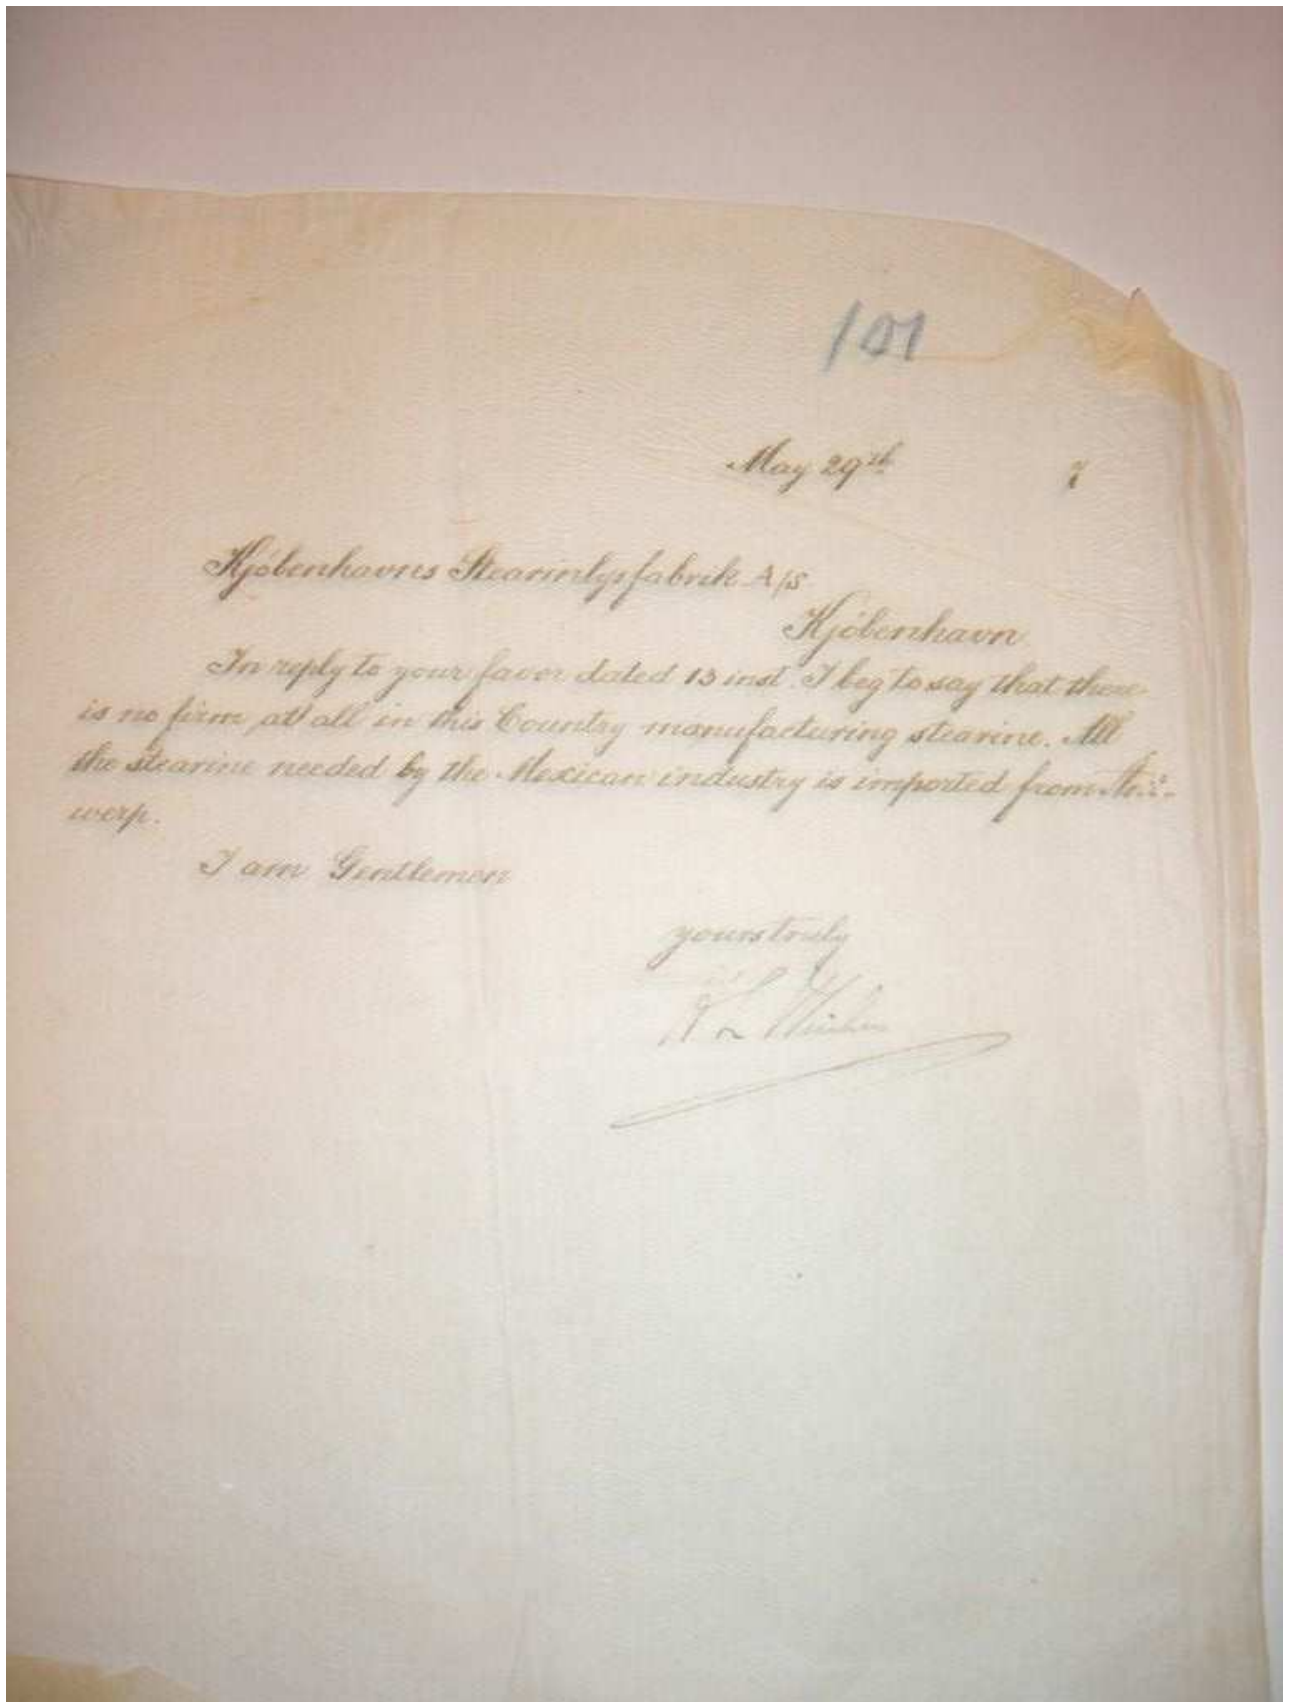 101
May 29th 7
Kjóbenhavns Stearinlysfabrik A/S
Kjóbenhavn
In reply to your favor dated 13 inst. I beg to say that there
is no firm at all in this Country manufacturing stearine. All
the stearine needed by the Mexican industry is imported from Ant-
werp.
I am Gentlemen
yours truly